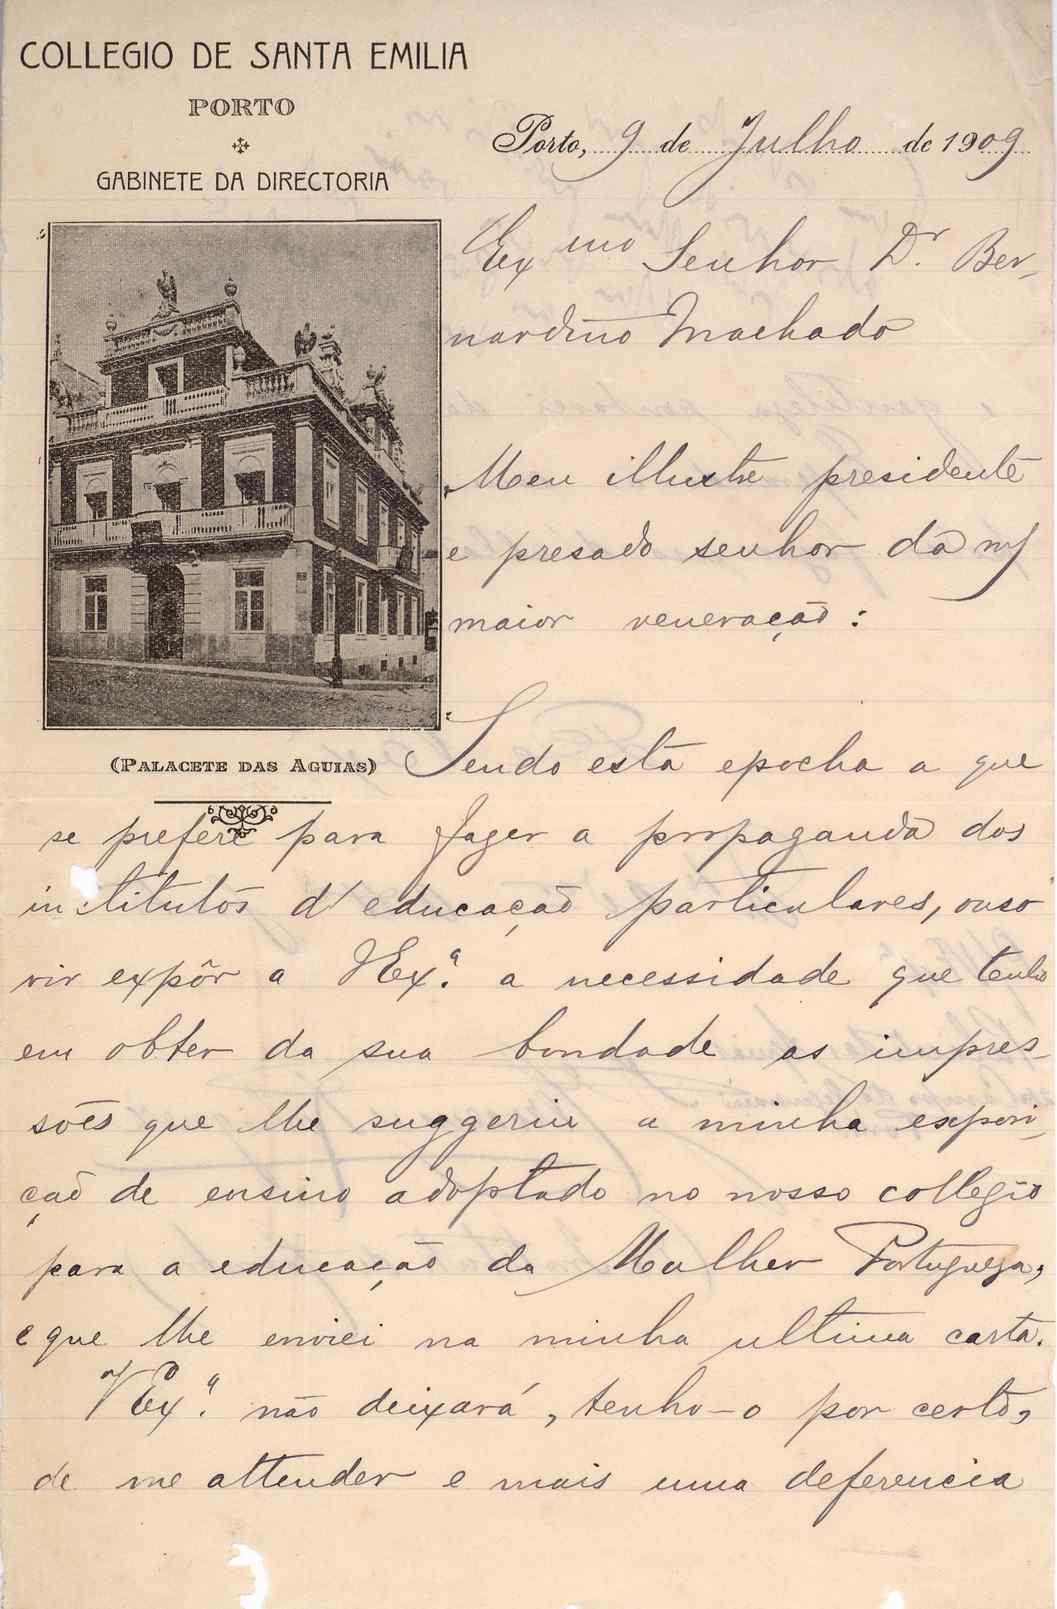 COLLEGIO DE SANTA EMILIA
PORTO
GABINETE DA DIRECTORIA
Porto, 9 de Julho de 1909
Exmo Senhor Dr. Ber-
nardino Machado
Meu illustre presidente
e presado senhor da mf
maior veneração:
(PALACETE DAS AGUIAS)
Sendo esta epocha a que
se prefere para fazer a propaganda dos
institutos d'educação particulares, ouso
vir expôr a VExª. a necessidade que tenho
em obter da sua bondade as impres-
sões que lhe suggeriu a minha exposi-
ção de ensino adoptado no nosso collegio
para a educação da Mulher Portugueza,
e que lhe enviei na minha ultima carta.
VExª. não deixará, tenho-o por certo,
de me attender e mais uma deferencia